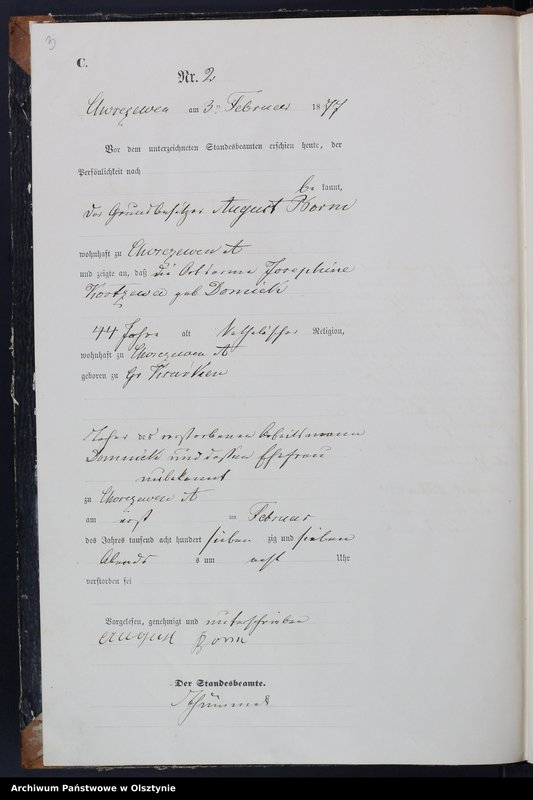 3
C.
Nr. 2
Chorezewen am 3. Februar 1877
Vor dem unterzeichneten Standesbeamten erschien heute, der
Persönlichkeit nach
be kannt,
der Grundbesitzer August Borm
wohnhaft zu Chorezewen A
und zeigte an, daß die Ortsarme Josephine
geb Domnick
44 Jahre alt Katholischer Religion,
wohnhaft zu Chorezewen A
geboren zu Gr
Tochter des verstorbenen Arbeitsmann
Domnick und dessen Ehefrau
unbekannt
zu Chorezewen A
am erst en Februar
des Jahres tausend acht hundert sieben zig und sieben
Abends s um acht Uhr
verstorben sei
Vorgelesen, genehmigt und unterschrieben
August Borm
Der Standesbeamte.
Archiwum Państwowe w Olsztynie